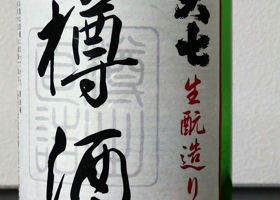 大七
生酛造り
樽酒